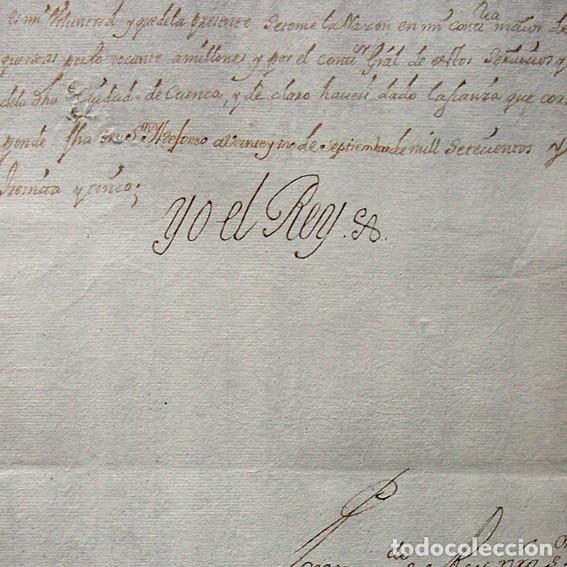 es mi voluntad y que de la presente se tome la Razon en mi Contaduria maior de
quentas por lo tocante a millones y por el Contor Gral de estos servicios y
de la dha Ciudad de Cuenca, y declaro haveis dado la fianza que corres
ponde fha en Sn Ildefonso a veinte y uno de septiembre de mill setecientos y
treinta y cinco;
yo el Rey.
de
todocoleccion